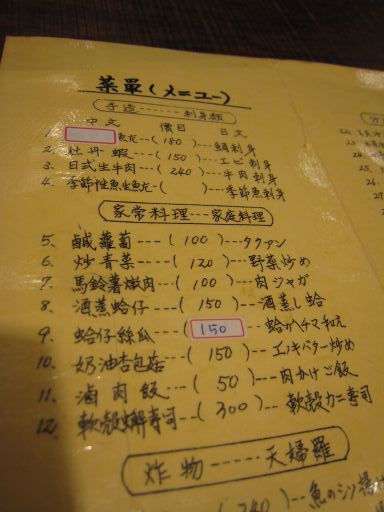 菜單(メニュー)
手造------刺身類
中文 價目 日文
1. 魚--(180)--鯛刺身
2. 牡丹蝦--(150)---エビ刺身
3. 日式生牛肉--(240)---牛肉刺身
4. 季節性魚生魚--( )---季節魚刺身
家常料理---家庭料理
5、鹹蘿蔔---(100)---タクアン
6、炒青菜---(120)---野菜炒め
7、馬鈴薯燉肉---(100)---肉ジャガ
8、酒蒸蛤仔---(150)---酒蒸し蛤
9、蛤仔絲瓜---(150---蛤かヘチマ
10、奶油杏包菇---(150)---エノキバター炒め
11、滷肉飯---(50)---肉かけご飯
12、軟殼蟹壽司--(300)--軟殼カニ寿司
炸物-----天婦羅
(240)---魚の